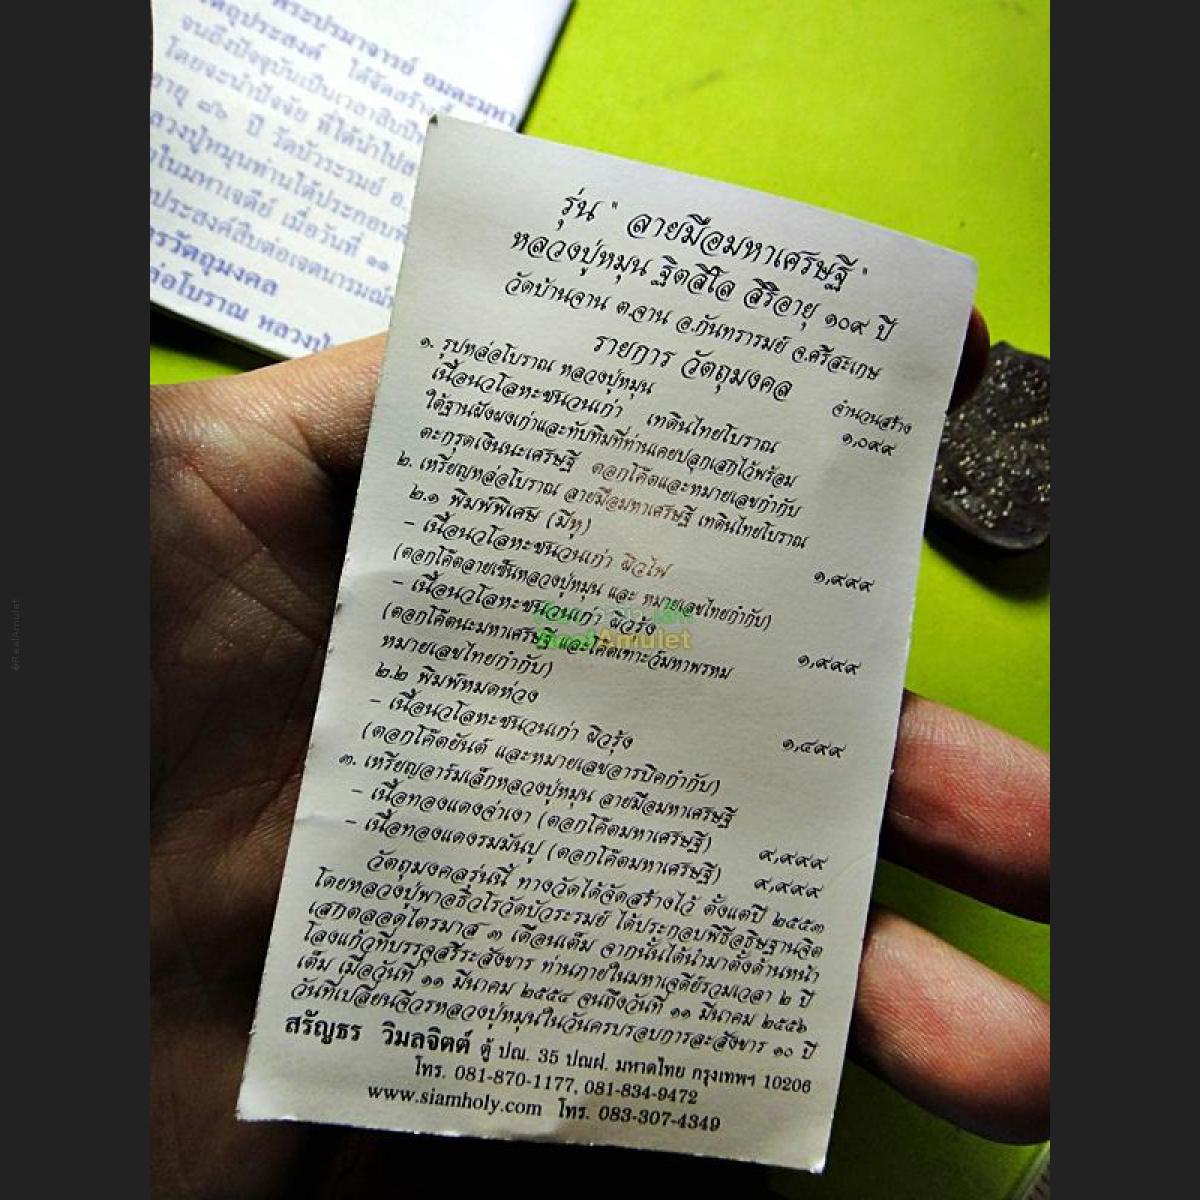 พระปรมาจารย์ อมตะมหา
วัตถุประสงค์ ได้จัดสร้างขึ้น
จนถึงปัจจุบันเป็นเวลาสิบปี
โดยจะนำปัจจัย ที่ได้นำไปส
อายุ ๘๖ ปี วัดบัวระรมย์ อ.
ลวงปู่หมุนท่านได้ประกอบพิ
ในมหาเจดีย์ เมื่อวันที่ ๑๑
ประสงค์สืบต่อเจตนารมณ์
ารวัตถุมงคล
หล่อโบราณ หลวงปู่
รุ่น " ลายมือมหาเศรษฐี "
หลวงปู่หมุน ฐิตสีโล สิริอายุ ๑๐๙ ปี
วัดบ้านจาน ต.จาน อ.กันทรารมย์ จ.ศรีสะเกษ
รายการ วัตถุมงคล
จำนวนสร้าง
๑. รูปหล่อโบราณ หลวงปู่หมุน
เนื้อนวโลหะชนวนเก่า เทดินไทยโบราณ ๑,๐๙๙
ใต้ฐานฝังผงเก่าและทับทิมที่ท่านเคยปลุกเสกไว้พร้อม
ตะกรุดเงินนะเศรษฐี ตอกโค๊ตและหมายเลขกำกับ
๒. เหรียญหล่อโบราณ ลายมือมหาเศรษฐี เทดินไทยโบราณ
๒.๑ พิมพ์พิเศษ (มีหู)
- เนื้อนวโลหะชนวนเก่า ผิวไฟ ๑,๙๙๙
(ตอกโค๊ตลายเซ็นหลวงปู่หมุน และ หมายเลขไทยกำกับ)
- เนื้อนวโลหะชนวนเก่า ผิวรุ้ง ๑,๙๙๙
(ตอกโค๊ตนะมหาเศรษฐี และโค๊ตเฑาะว์มหาพรหม
หมายเลขไทยกำกับ)
๒.๒ พิมพ์หมดห่วง
- เนื้อนวโลหะชนวนเก่า ผิวรุ้ง ๑,๔๙๙
(ตอกโค๊ตยันต์ และหมายเลขอารบิคกำกับ)
๓. เหรียญอาร์มเล็กหลวงปู่หมุน ลายมือมหาเศรษฐี
- เนื้อทองแดงจ่าเงา (ตอกโค๊ตมหาเศรษฐี) ๙,๙๙๙
- เนื้อทองแดงรมมันปู (ตอกโค๊ตมหาเศรษฐี) ๙,๙๙๙
วัตถุมงคลรุ่นนี้ ทางวัดได้จัดสร้างไว้ ตั้งแต่ปี ๒๕๕๓
โดยหลวงปู่พาอธิวโรวัดบัวระรมย์ ได้ประกอบพิธีอธิษฐานจิต
เสกตลอดไตรมาส ๓ เดือนเต็ม จากนั้นได้นำมาตั้งด้านหน้า
โลงแก้วที่บรรจุสรีระสังขาร ท่านภายในมหาเจดีย์รวมเวลา ๒ ปี
เต็ม เมื่อวันที่ ๑๑ มีนาคม ๒๕๕๔ จนถึงวันที่ ๑๑ มีนาคม ๒๕๕๖
วันที่เปลี่ยนจีวรหลวงปู่หมุนในวันครบรอบการละสังขาร ๑๐ ปี
สรัญธร วิมลจิตต์ ตู้ ปณ. 35 ปณฝ. มหาดไทย กรุงเทพฯ 10206
โทร. 081-870-1177, 081-834-9472
www.siamholy.com โทร. 083-307-4349
RealAmulet
©RealAmulet